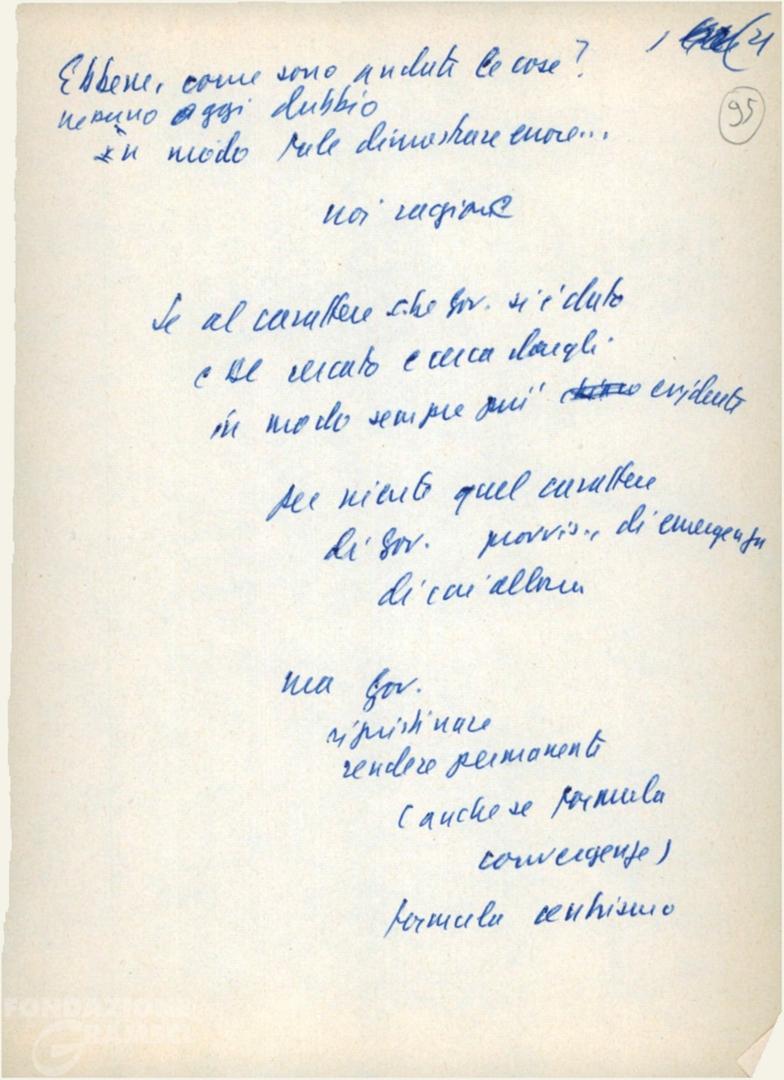 21
95
Ebbene, come sono andate le cose?
nessuno oggi dubbio
in modo tale dimostrare errore...
noi ragione
Se al carattere che Gov. si è dato
e se cercato e cerca dargli
in modo sempre più evidente
per niente quel carattere
di Gov. provvis., di emergenza
di cui allora
ma Gov.
ripristinare
rendere permanente
(anche se formula
convergenze)
formula centrismo
FONDAZIONE
GRAMSCI